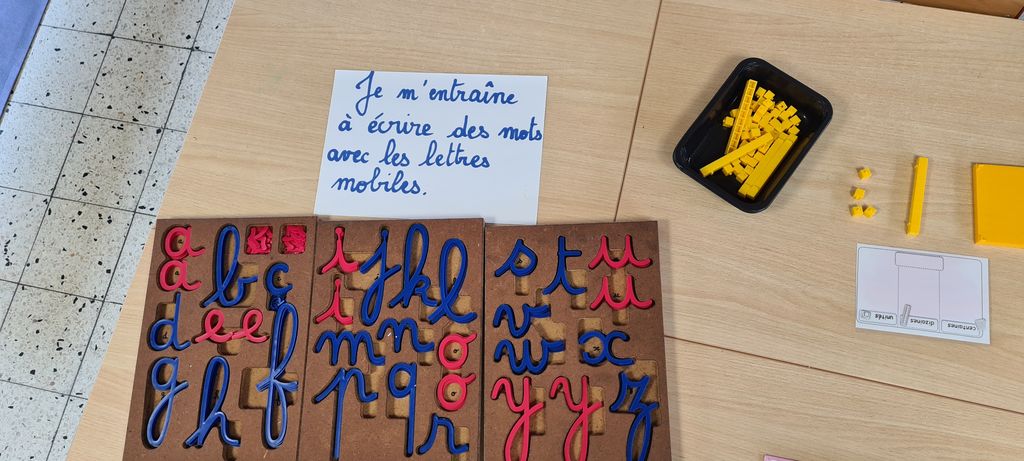 Je m'entraîne
à écrire des mots
avec les lettres
mobiles.
a b c
a
d e e f
g h
i j k l
i
m n o
p q o
r
s t u
u
v
w x
y y z
centaines dizaines unités